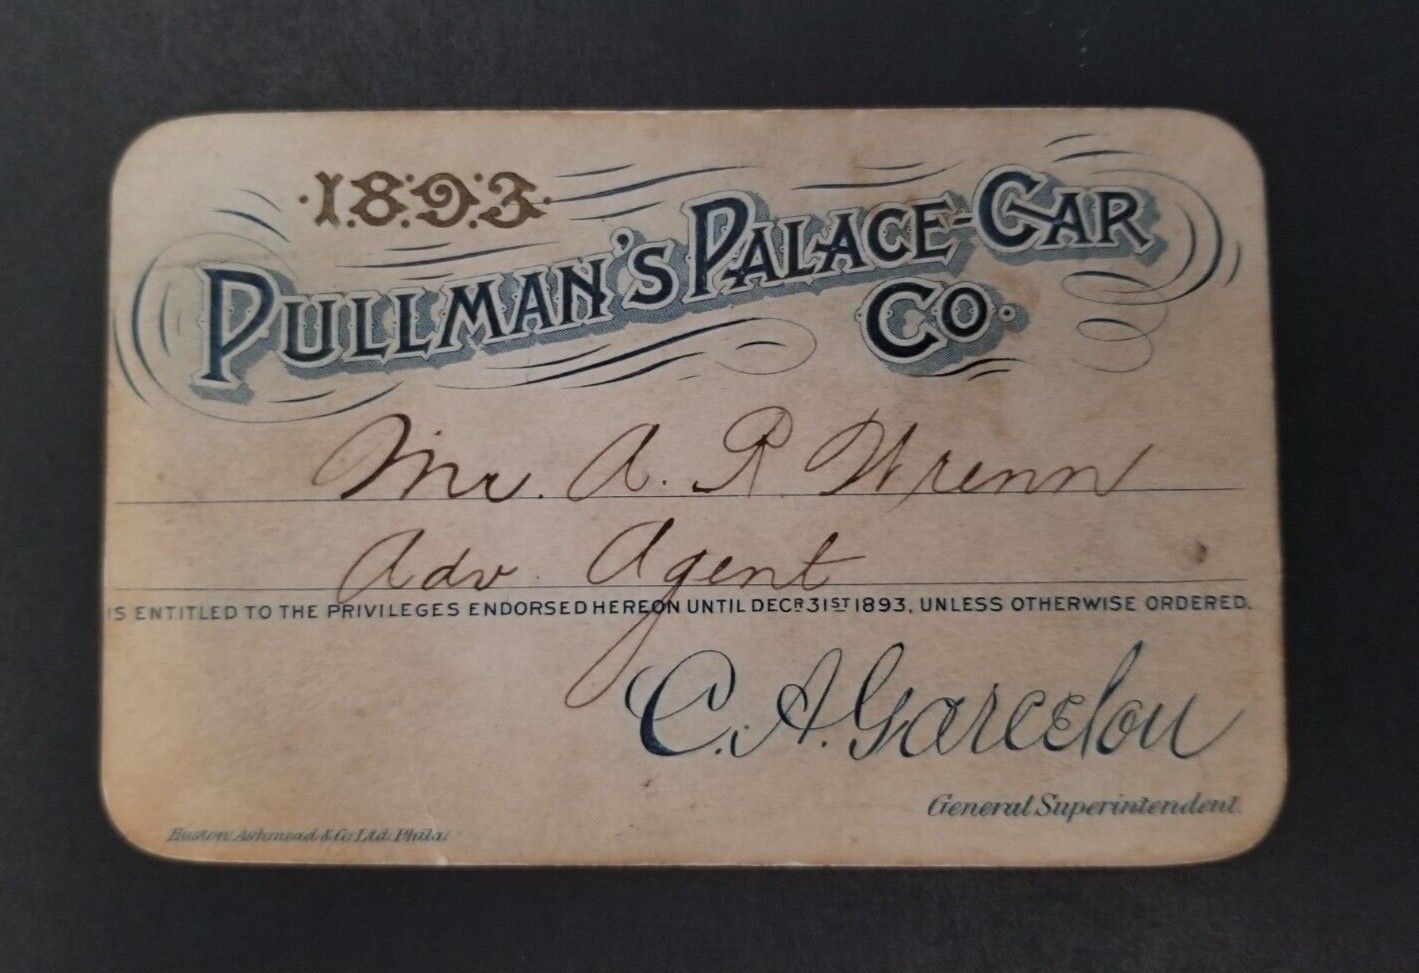 1893
PULLMAN'S PALACE-CAR
CO.
Mr. A. R. Wrenn
Adv. Agent
IS ENTITLED TO THE PRIVILEGES ENDORSED HEREON UNTIL DECR 31ST 1893, UNLESS OTHERWISE ORDERED.
C. A. Garcelon
General Superintendent.
Huston Ashmead & Co. Ltd. Phila.